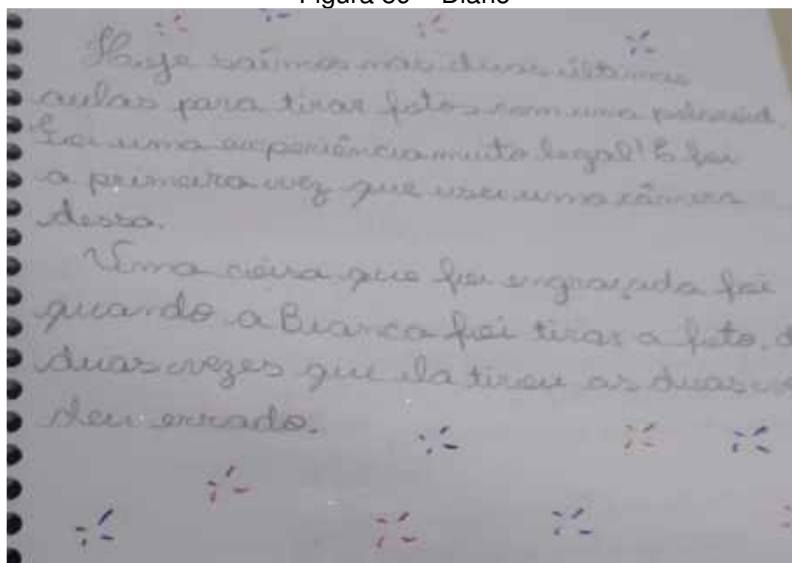 Diário
Hoje saímos nas duas últimas
aulas para tirar fotos com uma polaroid.
Foi uma experiência muito legal! E foi
a primeira vez que usei uma câmera
dessa.
Uma coisa que foi engraçada foi
quando a Bianca foi tirar a foto,
duas vezes que ela tirou as duas
deu errado.